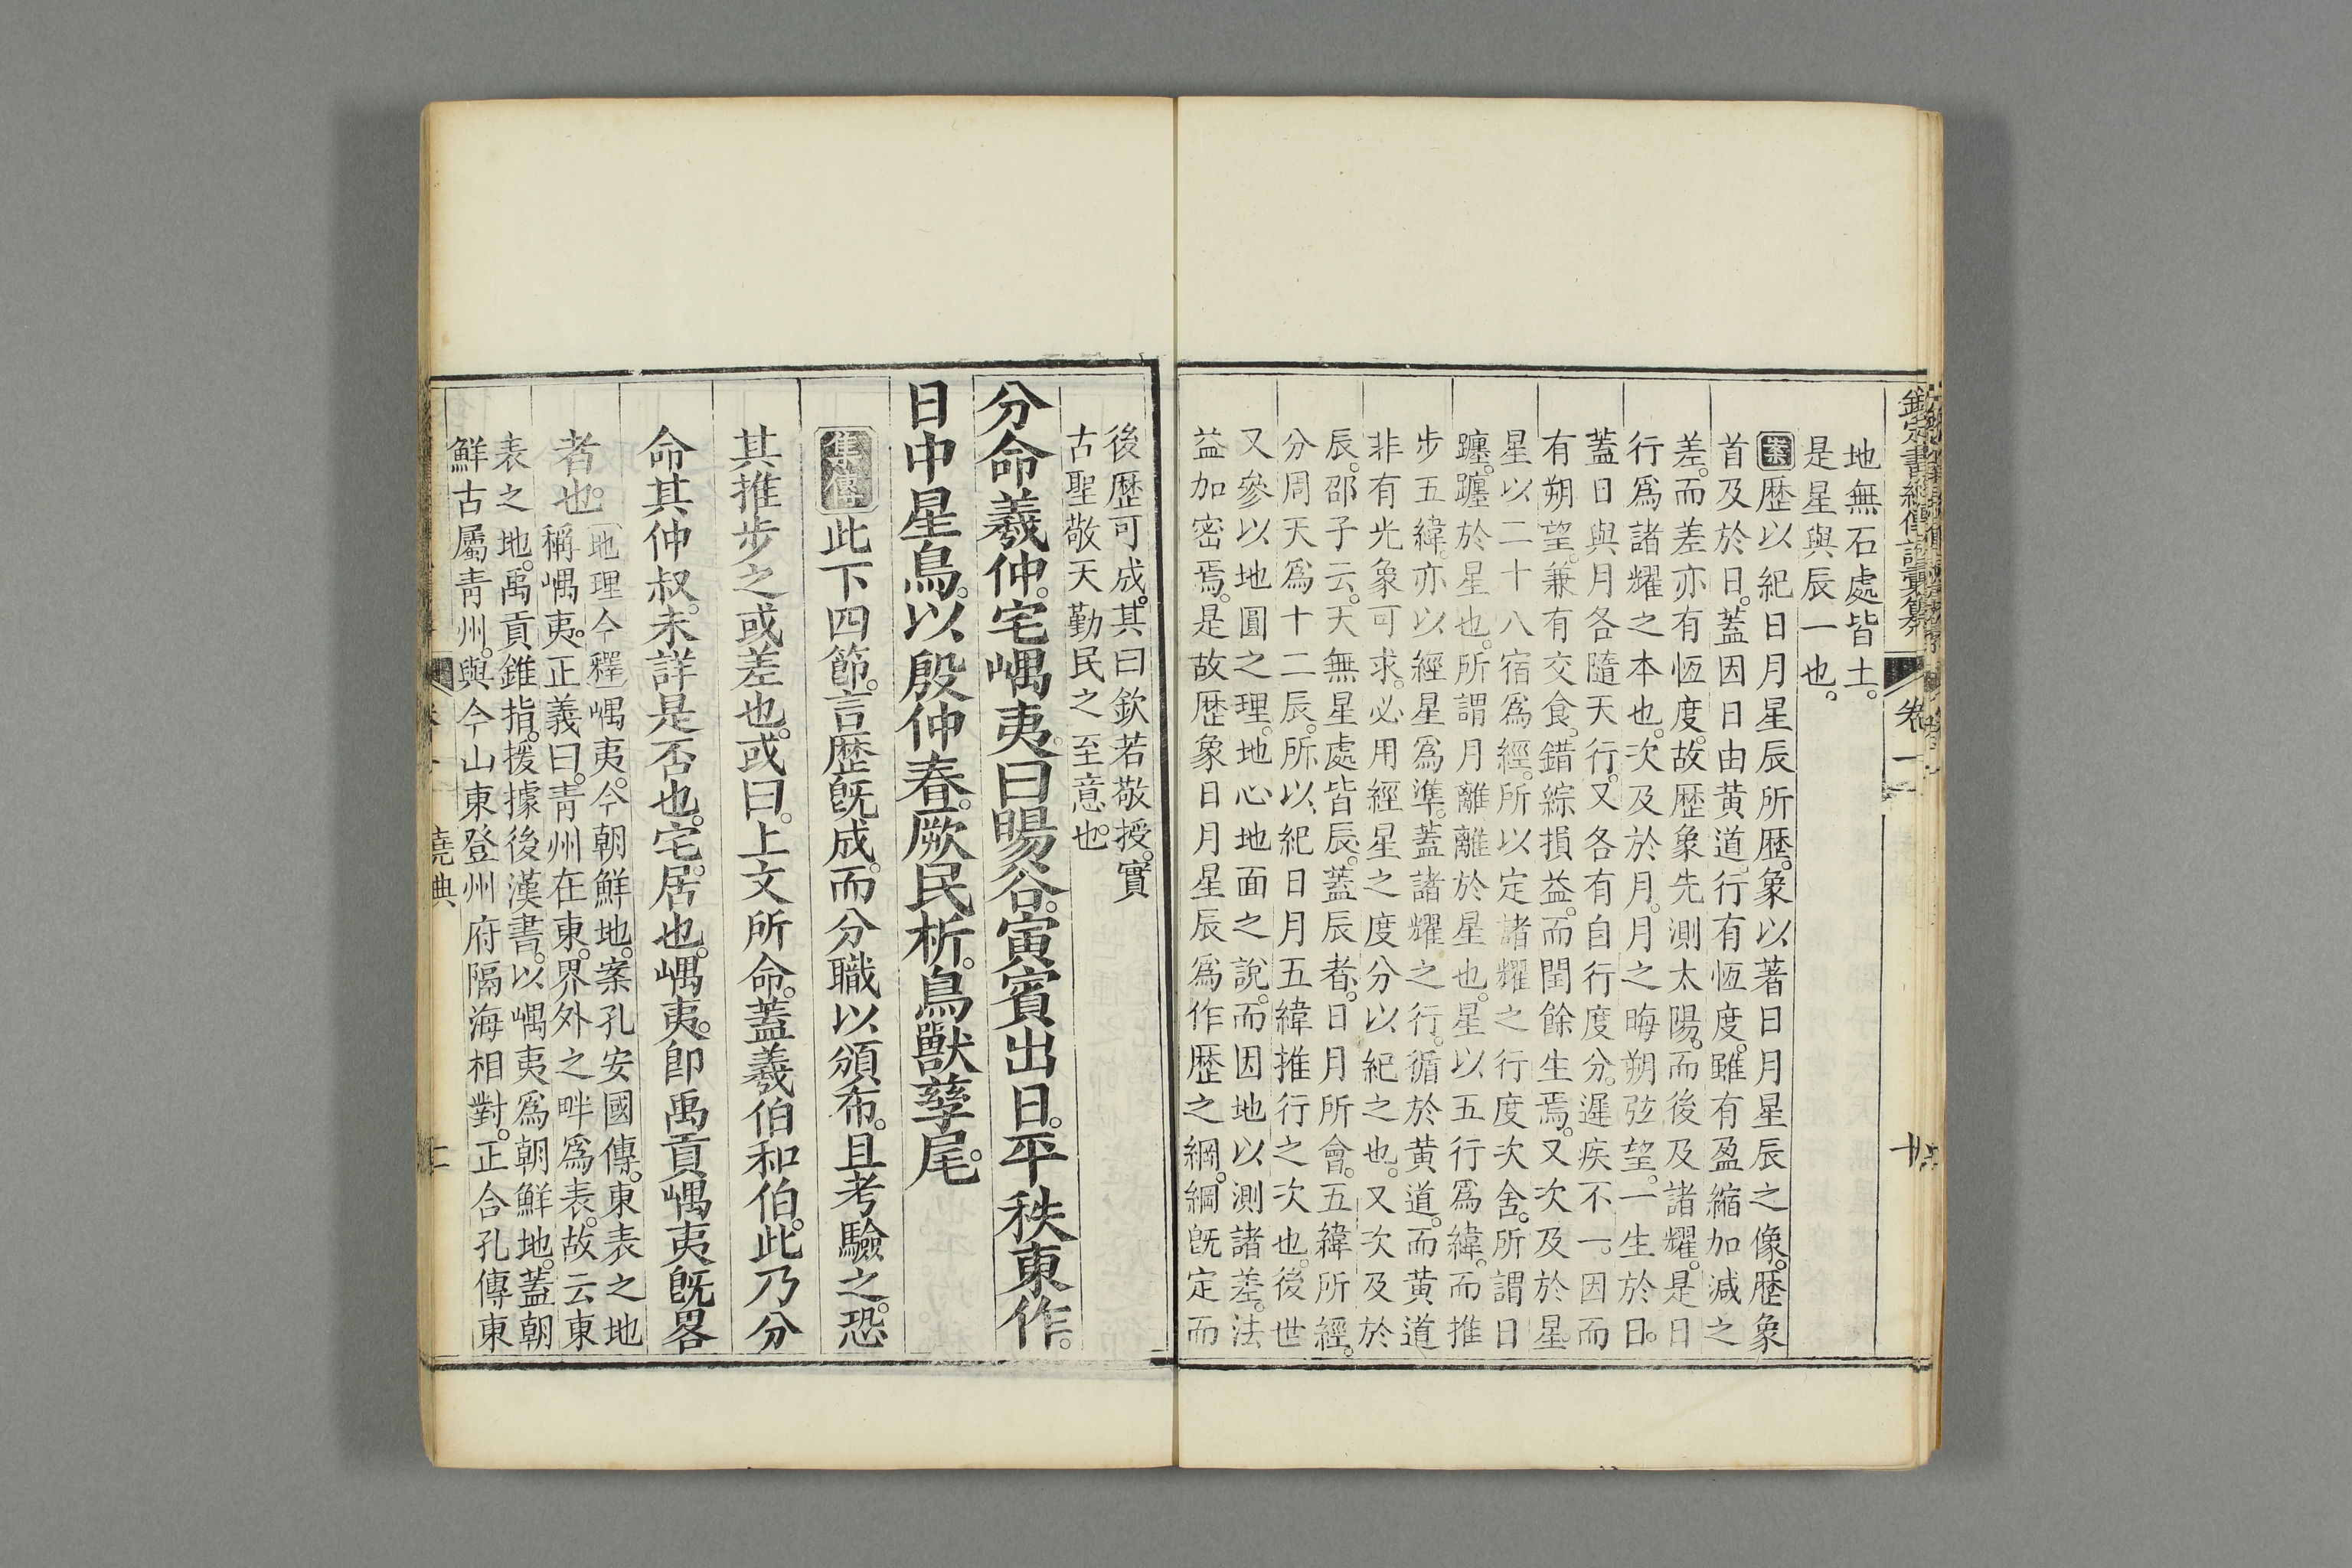 欽定書經傳說彙纂
卷一
十
地無石處皆土。
是星與辰一也。
案歷以紀日月星辰所歷。象以著日月星辰之像。歷象
首及於日。蓋因日由黃道。行有恆度。雖有盈縮加減之
差。而差亦有恆度。故歷象先測太陽。而後及諸耀。是日
行爲諸耀之本也。次及於月。月之晦朔弦望。一生於日。
蓋日與月各隨天行。又各有自行度分。遲疾不一。因而
有朔望。兼有交食。錯綜損益。而閏餘生焉。又次及於星。
星以二十八宿爲經。所以定諸耀之行度次舍。所謂日
躔。躔於星也。所謂月離。離於星也。星以五行爲緯。而推
步五緯。亦以經星爲準。蓋諸耀之行。循於黃道。而黃道
非有光象可求。必用經星之度分以紀之也。又次及於
辰。邵子云。天無星處皆辰。蓋辰者。日月所會。五緯所經。
分周天爲十二辰。所以紀日月五緯推行之次也。後世
又參以地圓之理。地心地面之說。而因地以測諸差。法
益加密焉。是故歷象日月星辰爲作歷之綱。綱旣定而
後歷可成。其曰欽若敬授。實
古聖敬天勤民之至意也。
分命羲仲。宅嵎夷。曰暘谷。寅賓出日。平秩東作。
日中星鳥。以殷仲春。厥民析。鳥獸孳尾。
集傳此下四節。言歷旣成。而分職以頒布。且考驗之。恐
其推步之或差也。或曰。上文所命。蓋羲伯和伯。此乃分
命其仲叔。未詳是否也。宅。居也。嵎夷。卽禹貢嵎夷旣畧
者也。
地理今釋嵎夷。今朝鮮地。案孔安國傳。東表之地
稱嵎夷。正義曰。靑州在東。界外之畔爲表。故云東
表之地。禹貢錐指。援據後漢書。以嵎夷爲朝鮮地。蓋朝
鮮古屬靑州。與今山東登州府隔海相對。正合孔傳東
堯典